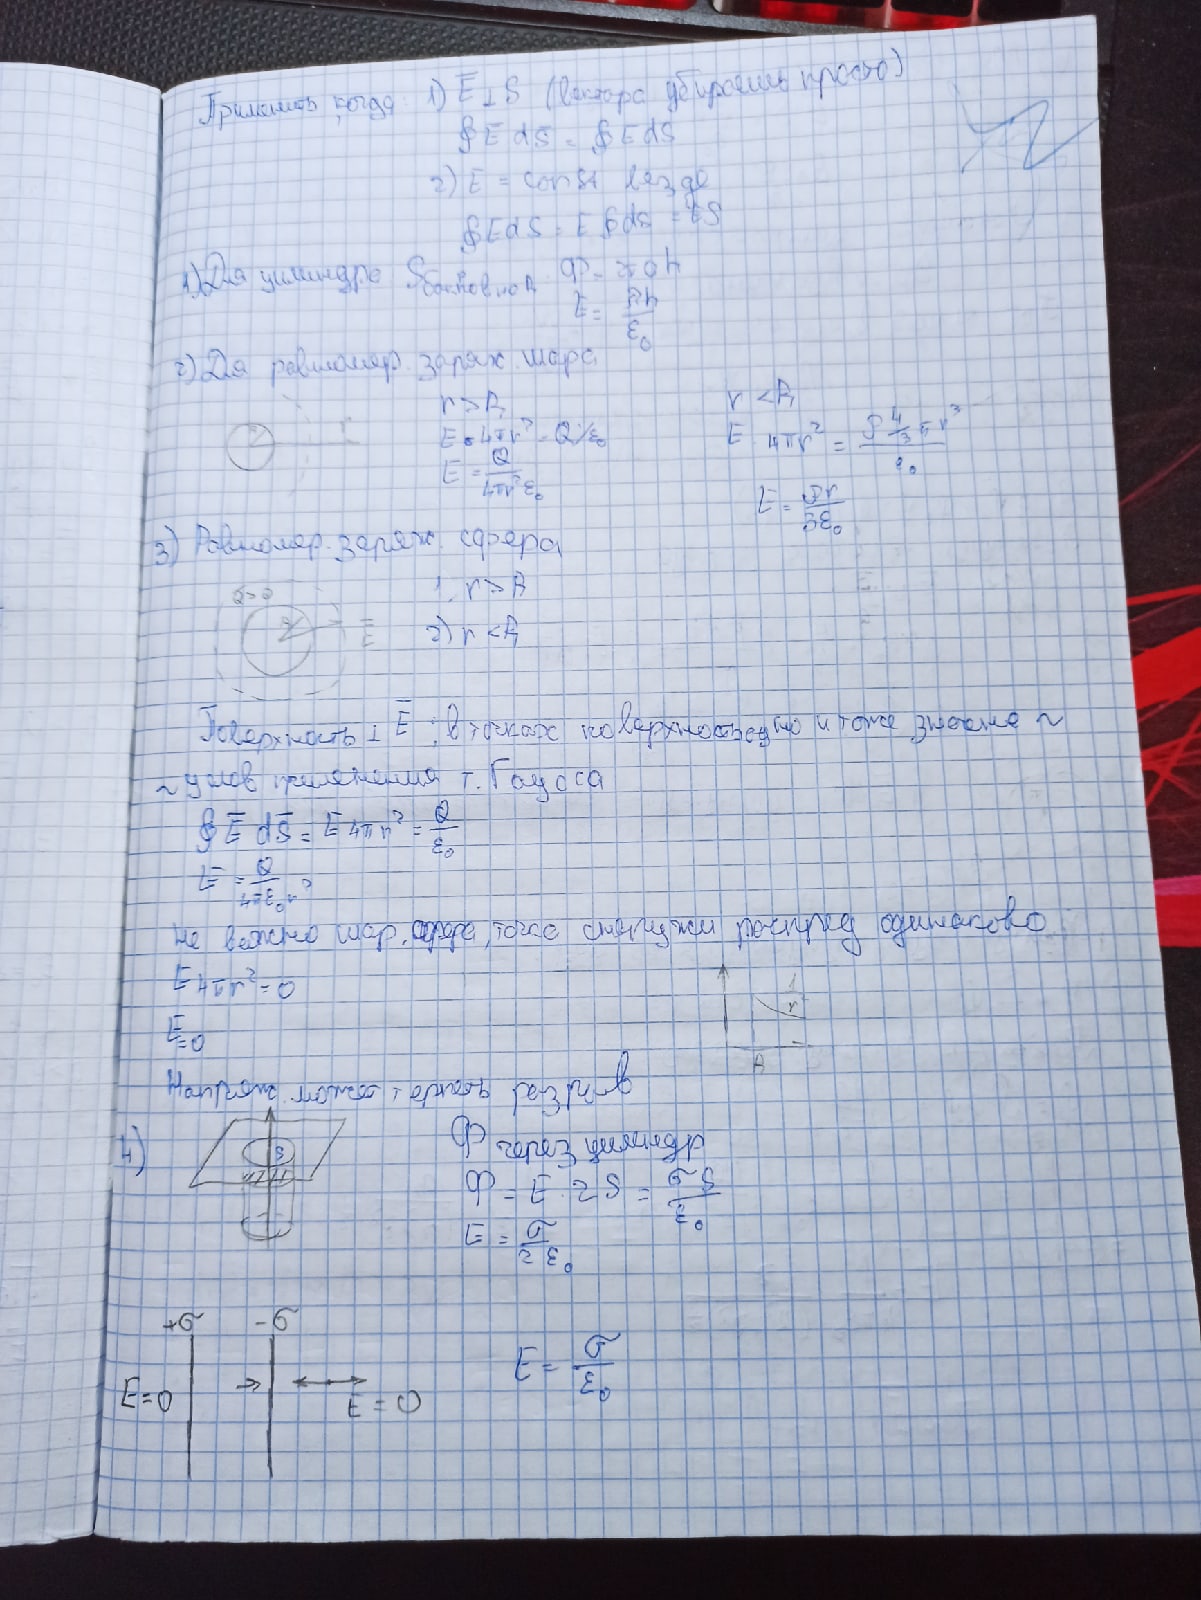 Применять когда 1) E̅ ⊥ S (вектора убираешь просто)
∮ E̅ dS̅ = ∮ E dS
2) E = const везде
∮ E dS = E ∮ dS = ES
1) Для цилиндра Sбоковой Ф
E = / ε₀
2) Для равномер. заряж. шара
r > R r < R
E · 4πr² = Q/ε₀ E 4πr² = ρ 4/3 πr³ / ε₀
E = Q / 4πr²ε₀ E = ρr / 3ε₀
3) Равномер. заряж. сфера
1. r > R
2) r < R
E̅
Поверхность ⊥ E̅, в точках поверхности одно и тоже значение ~
~ услов применения т. Гаусса
∮ E̅ dS̅ = E 4πr² = Q / ε₀
E = Q / 4πε₀r²
не важно шар, сфера, точка снаружи распред одинаково
E 4πr² = 0
E = 0
r
R
Напряж. может терпеть разрыв
4) S Ф через цилиндр
Ф = E · 2 S = σS / ε₀
E = σ / 2ε₀
+σ −σ
E = σ / ε₀
E = 0 E = 0